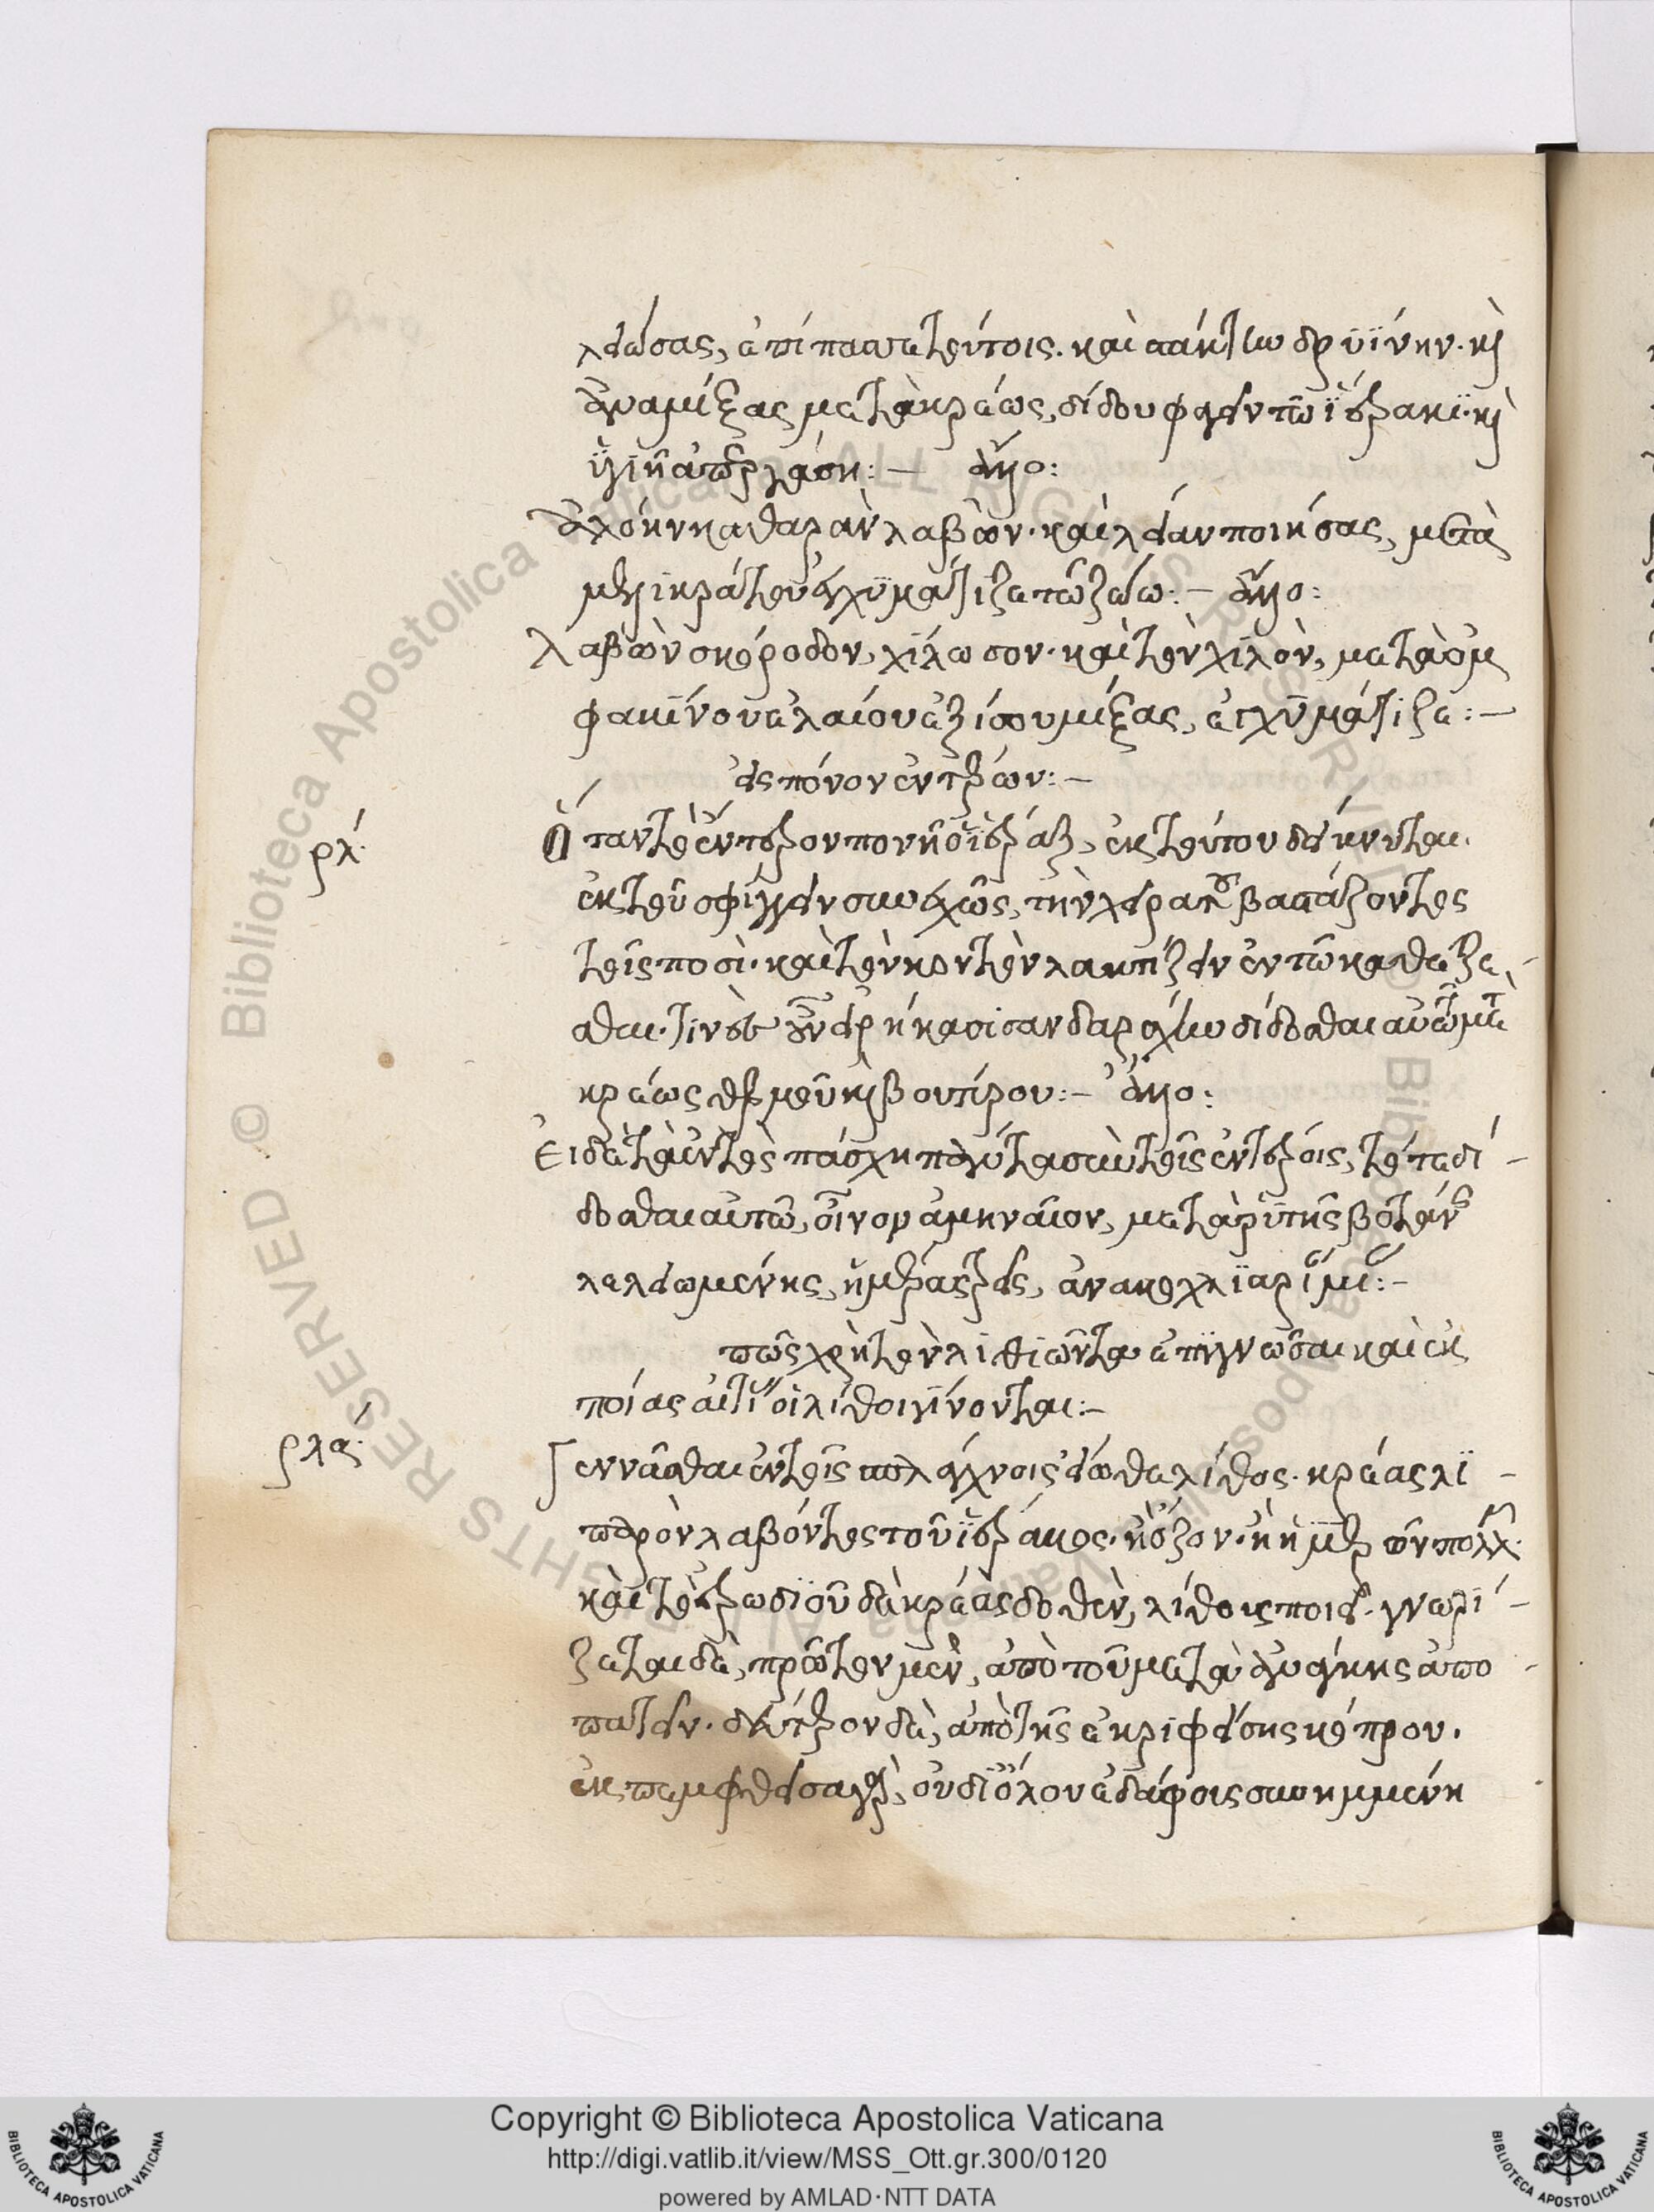 λειώσας, ἐπίπασσε τούτοις. καὶ στάκτην δρυΐνην. καὶ
ἀναμίξας μετὰ κρέως, δίδου φαγεῖν τῷ ἱέρακι. καὶ
ὑγιῆ ἀπεργάση:— ἄλλο:
ἀλόην καθαρὰν λαβὼν. καὶ λείαν ποιήσας, μετὰ
μελικράτου ἐγχυμάτιζε τῷ ζώω:— ἄλλο:
λαβὼν σκόροδον, χίλωσον. καὶ τὸν χιλὸν, μετὰ ὀμ
φακίνου ἐλαίου ἐξίσου μίξας, ἐγχυμάτιζε:—
εἰς πόνον ἐντέρων:—
ρλ.
Ὅταν τὸ ἔντερον πονῆ ὁ ἱέραξ, ἐκ τούτου δείκνυται.
ἐκ τοῦ σφίγγειν συνεχῶς, τὴν χεῖρα τοῦ βαστάζοντος
τοῖς ποσὶ. καὶ τὸν κοντὸν λακτίζειν ἐν τῷ καθέζε-
σθαι. τινὲς οὖν εἰρήκασι σανδαράχην δίδοσθαι αὐτῷ μετὰ
κρέως θερμοῦ καὶ βουτίρου:— ἄλλο:
Εἰ δὲ τὰ ἐντὸς πάσχη πάντα σὺν τοῖς ἐντέροις, τότε δί-
δοσθαι αὐτῷ, οἶνον ἀμηναῖον, μετὰ ῥυτῆς βοτάνης
λελειωμένης, ἡμέρας τρεῖς, ἀνα κοχλιαρί
πῶς χρὴ τὸν λιθιῶντα ἐπιγνῶσαι καὶ ἐκ
ποίας αἰτίας οἱ λίθοι γίνονται:—
ρλα.
Γεννᾶσθαι ἐν τοῖς σπλάγχνοις εἴωθε λίθος. κρέας λι-
παρὸν λαβόντος τοῦ ἱέρακος. ἢ ὄζον. ἢ ἡμερῶν πολλῶν.
καὶ τὸ ἐρωδιοῦ δὲ κρέας δοθὲν, λίθους ποιεῖ. γνωρί-
ζεται δὲ, πρῶτον μὲν, ἀπὸ τοῦ μετὰ ἀνάγκης ἀπο-
πατεῖν. δεύτερον δὲ, ἀπὸ τῆς ἐκριφείσης κόπρου.
ἐκπεμφθεῖσα γὰρ, οὐ δι' ὅλου ἐδάφοις συνημμένη
Copyright © Biblioteca Apostolica Vaticana
http://digi.vatlib.it/view/MSS_Ott.gr.300/0120
powered by AMLAD·NTT DATA